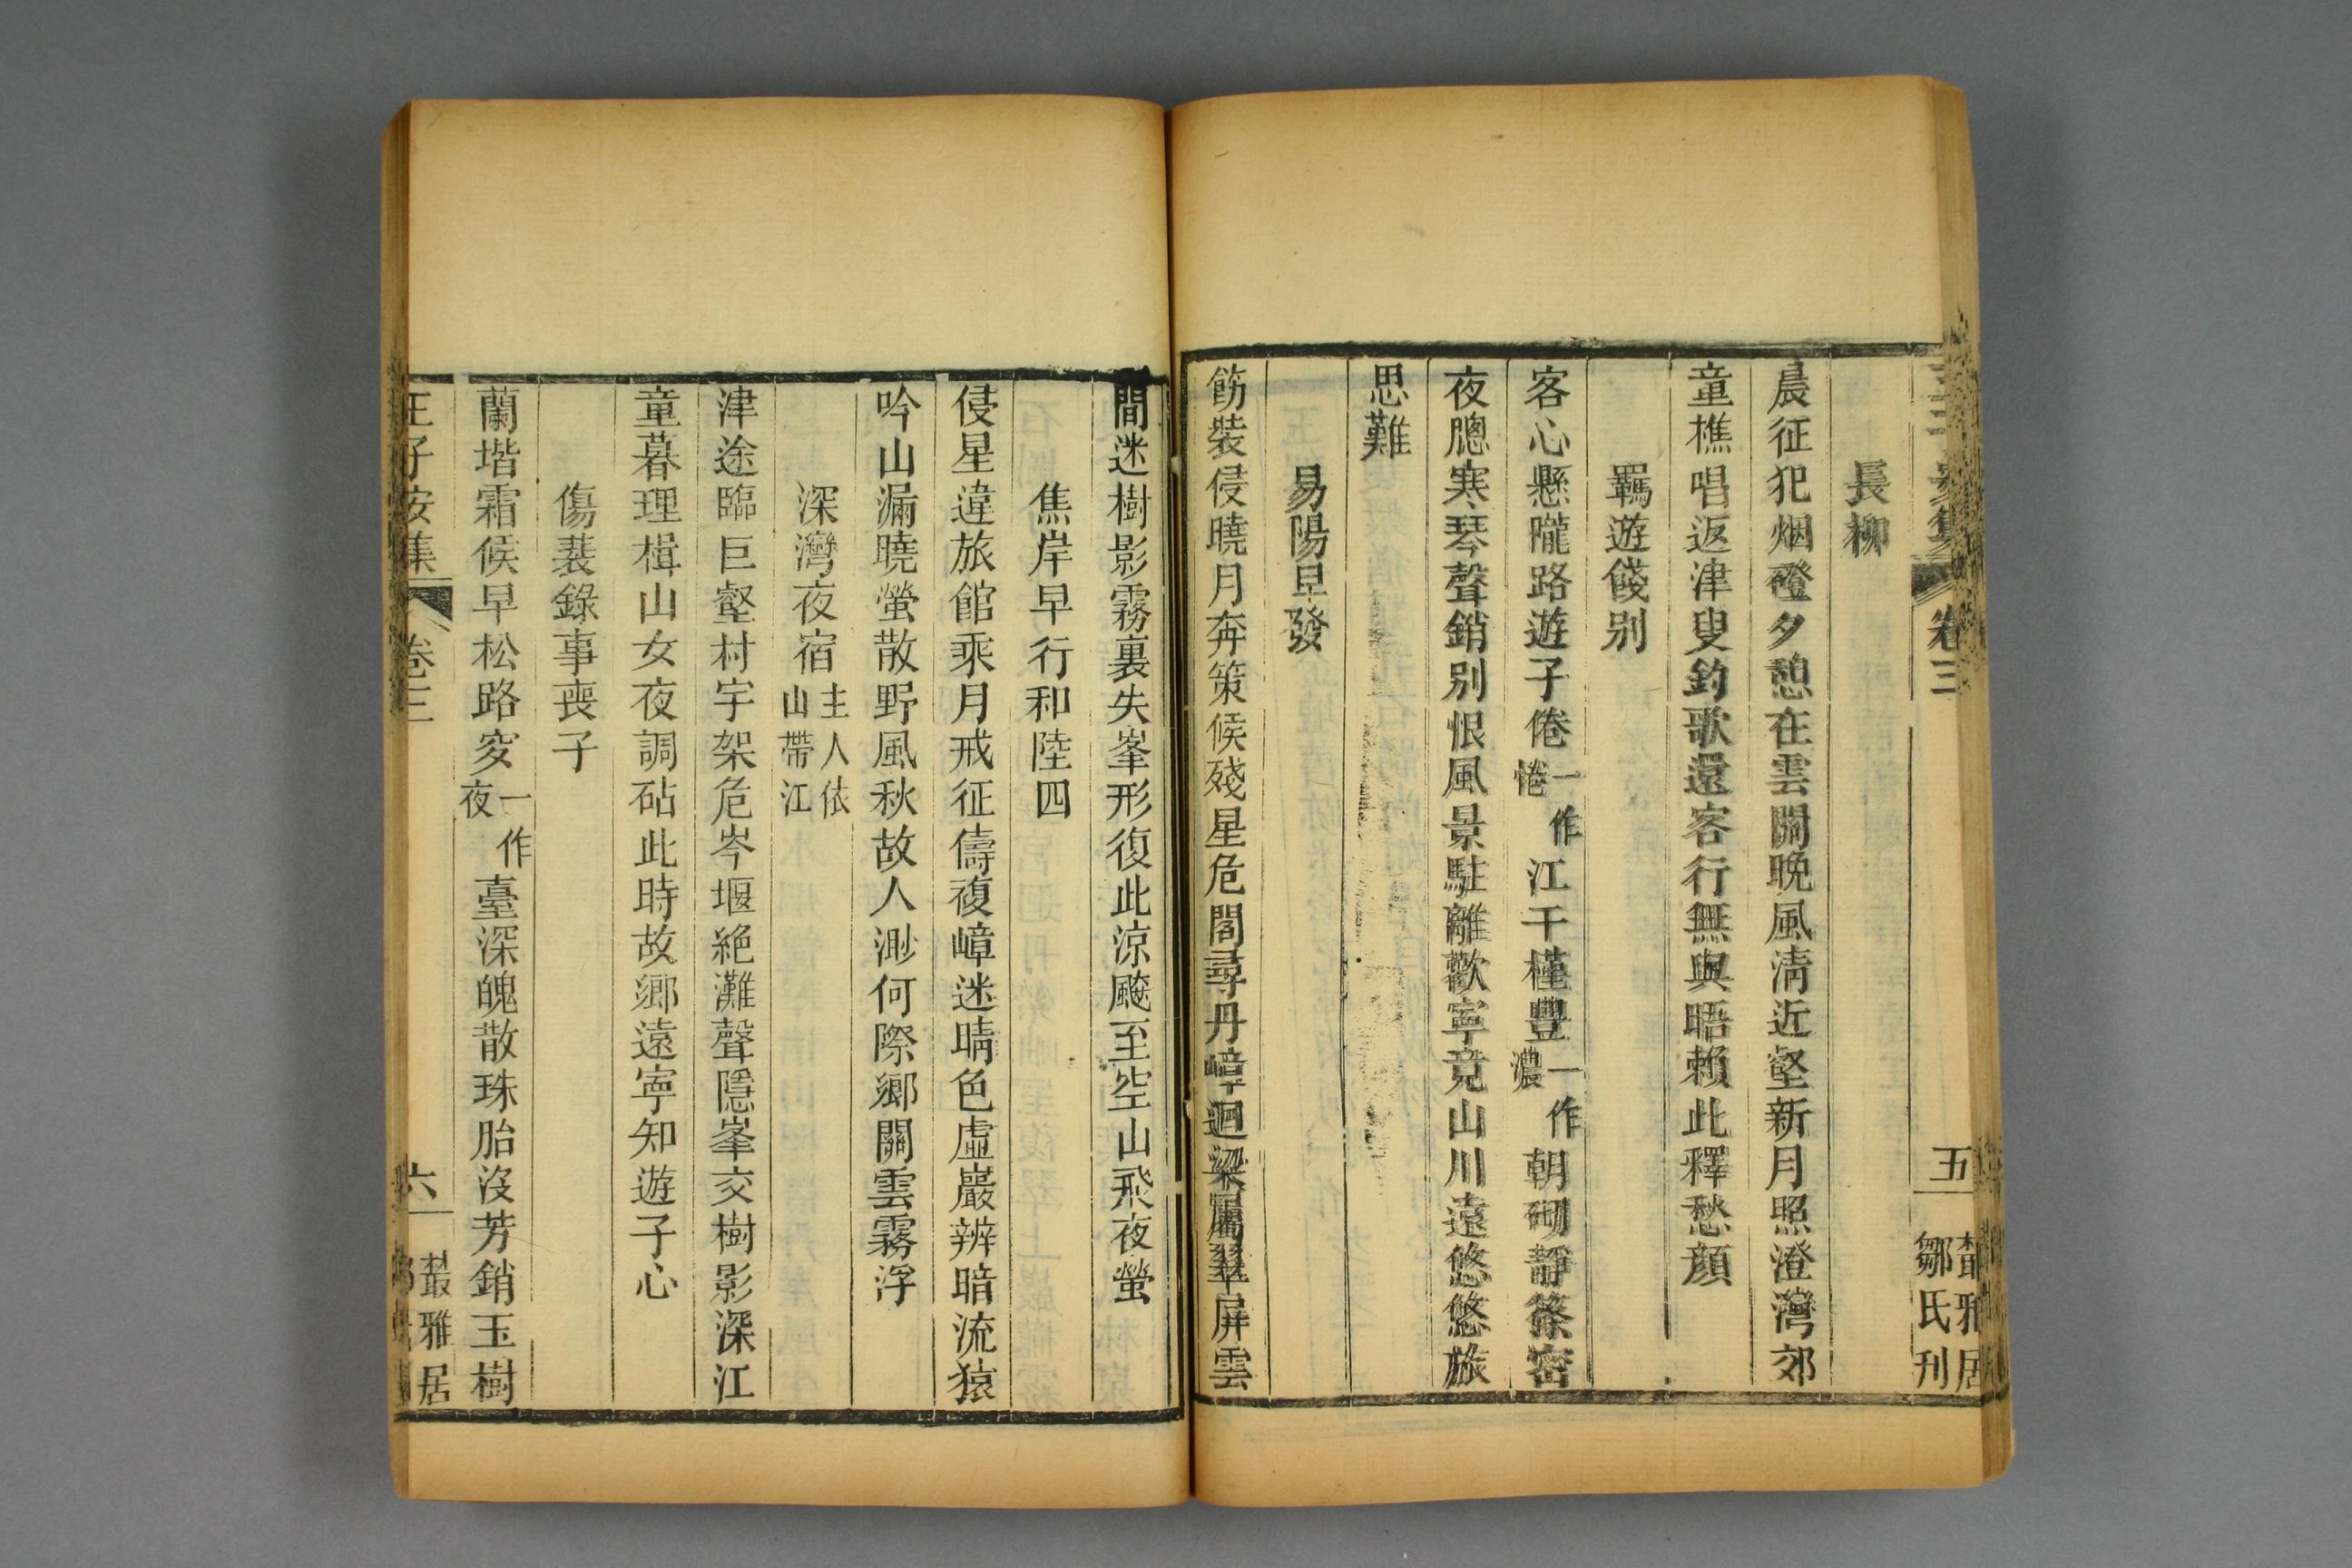 卷三
五
藂雅居
鄒氏刊
長柳
晨征犯烟磴夕憩在雲關晚風淸近壑新月照澄灣郊
童樵唱返津叟釣歌還客行無與晤賴此釋愁顔
羈遊餞别
客心懸隴路遊子倦一作惓江干槿豐一作濃朝砌靜篠密
夜牕寒琴聲銷别恨風景駐離歡寜竟山川遠悠悠旅
思難
易陽早發
飭裝侵曉月奔策候殘星危閣尋丹嶂迴梁屬翠屏雲
間迷樹影霧裏失峯形復此涼飈至空山飛夜螢
焦岸早行和陸四
侵星違旅館乘月戒征儔複嶂迷晴色虛巖辨暗流猿
吟山漏曉螢散野風秋故人渺何際鄉關雲霧浮
深灣夜宿主人依山帶江
津途臨巨壑村宇架危岑堰絶灘聲隱峯交樹影深江
童暮理楫山女夜調砧此時故鄉遠寜知遊子心
傷裴錄事喪子
蘭堦霜候早松路穸一作夜臺深魄散珠胎沒芳銷玉樹
王子安集
卷三
六
藂雅居